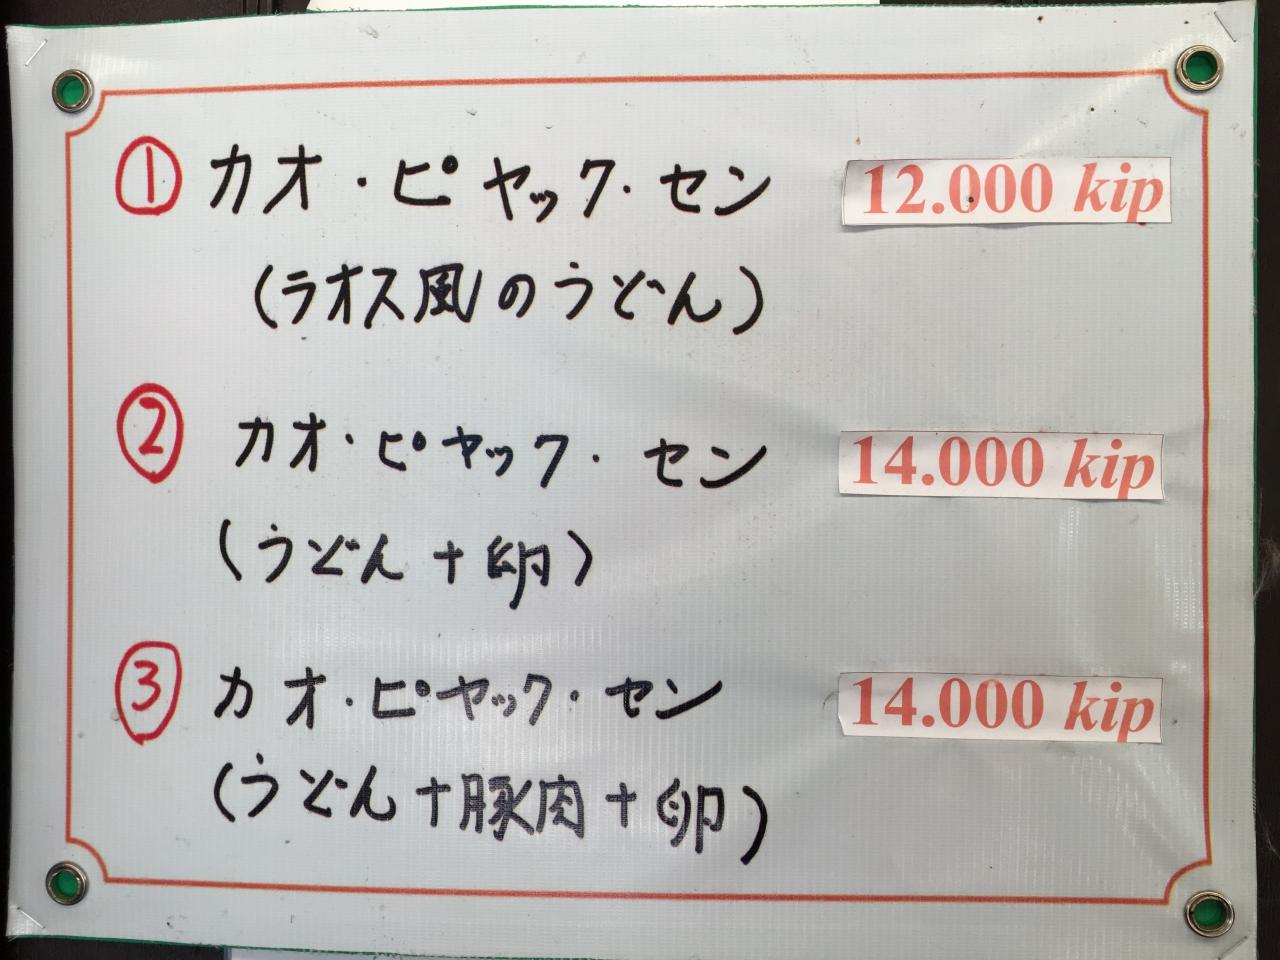 ① カオ・ピヤック・セン 12.000 kip
(ラオス風のうどん)
② カオ・ピヤック・セン 14.000 kip
(うどん+卵)
③ カオ・ピヤック・セン 14.000 kip
(うどん+豚肉+卵)